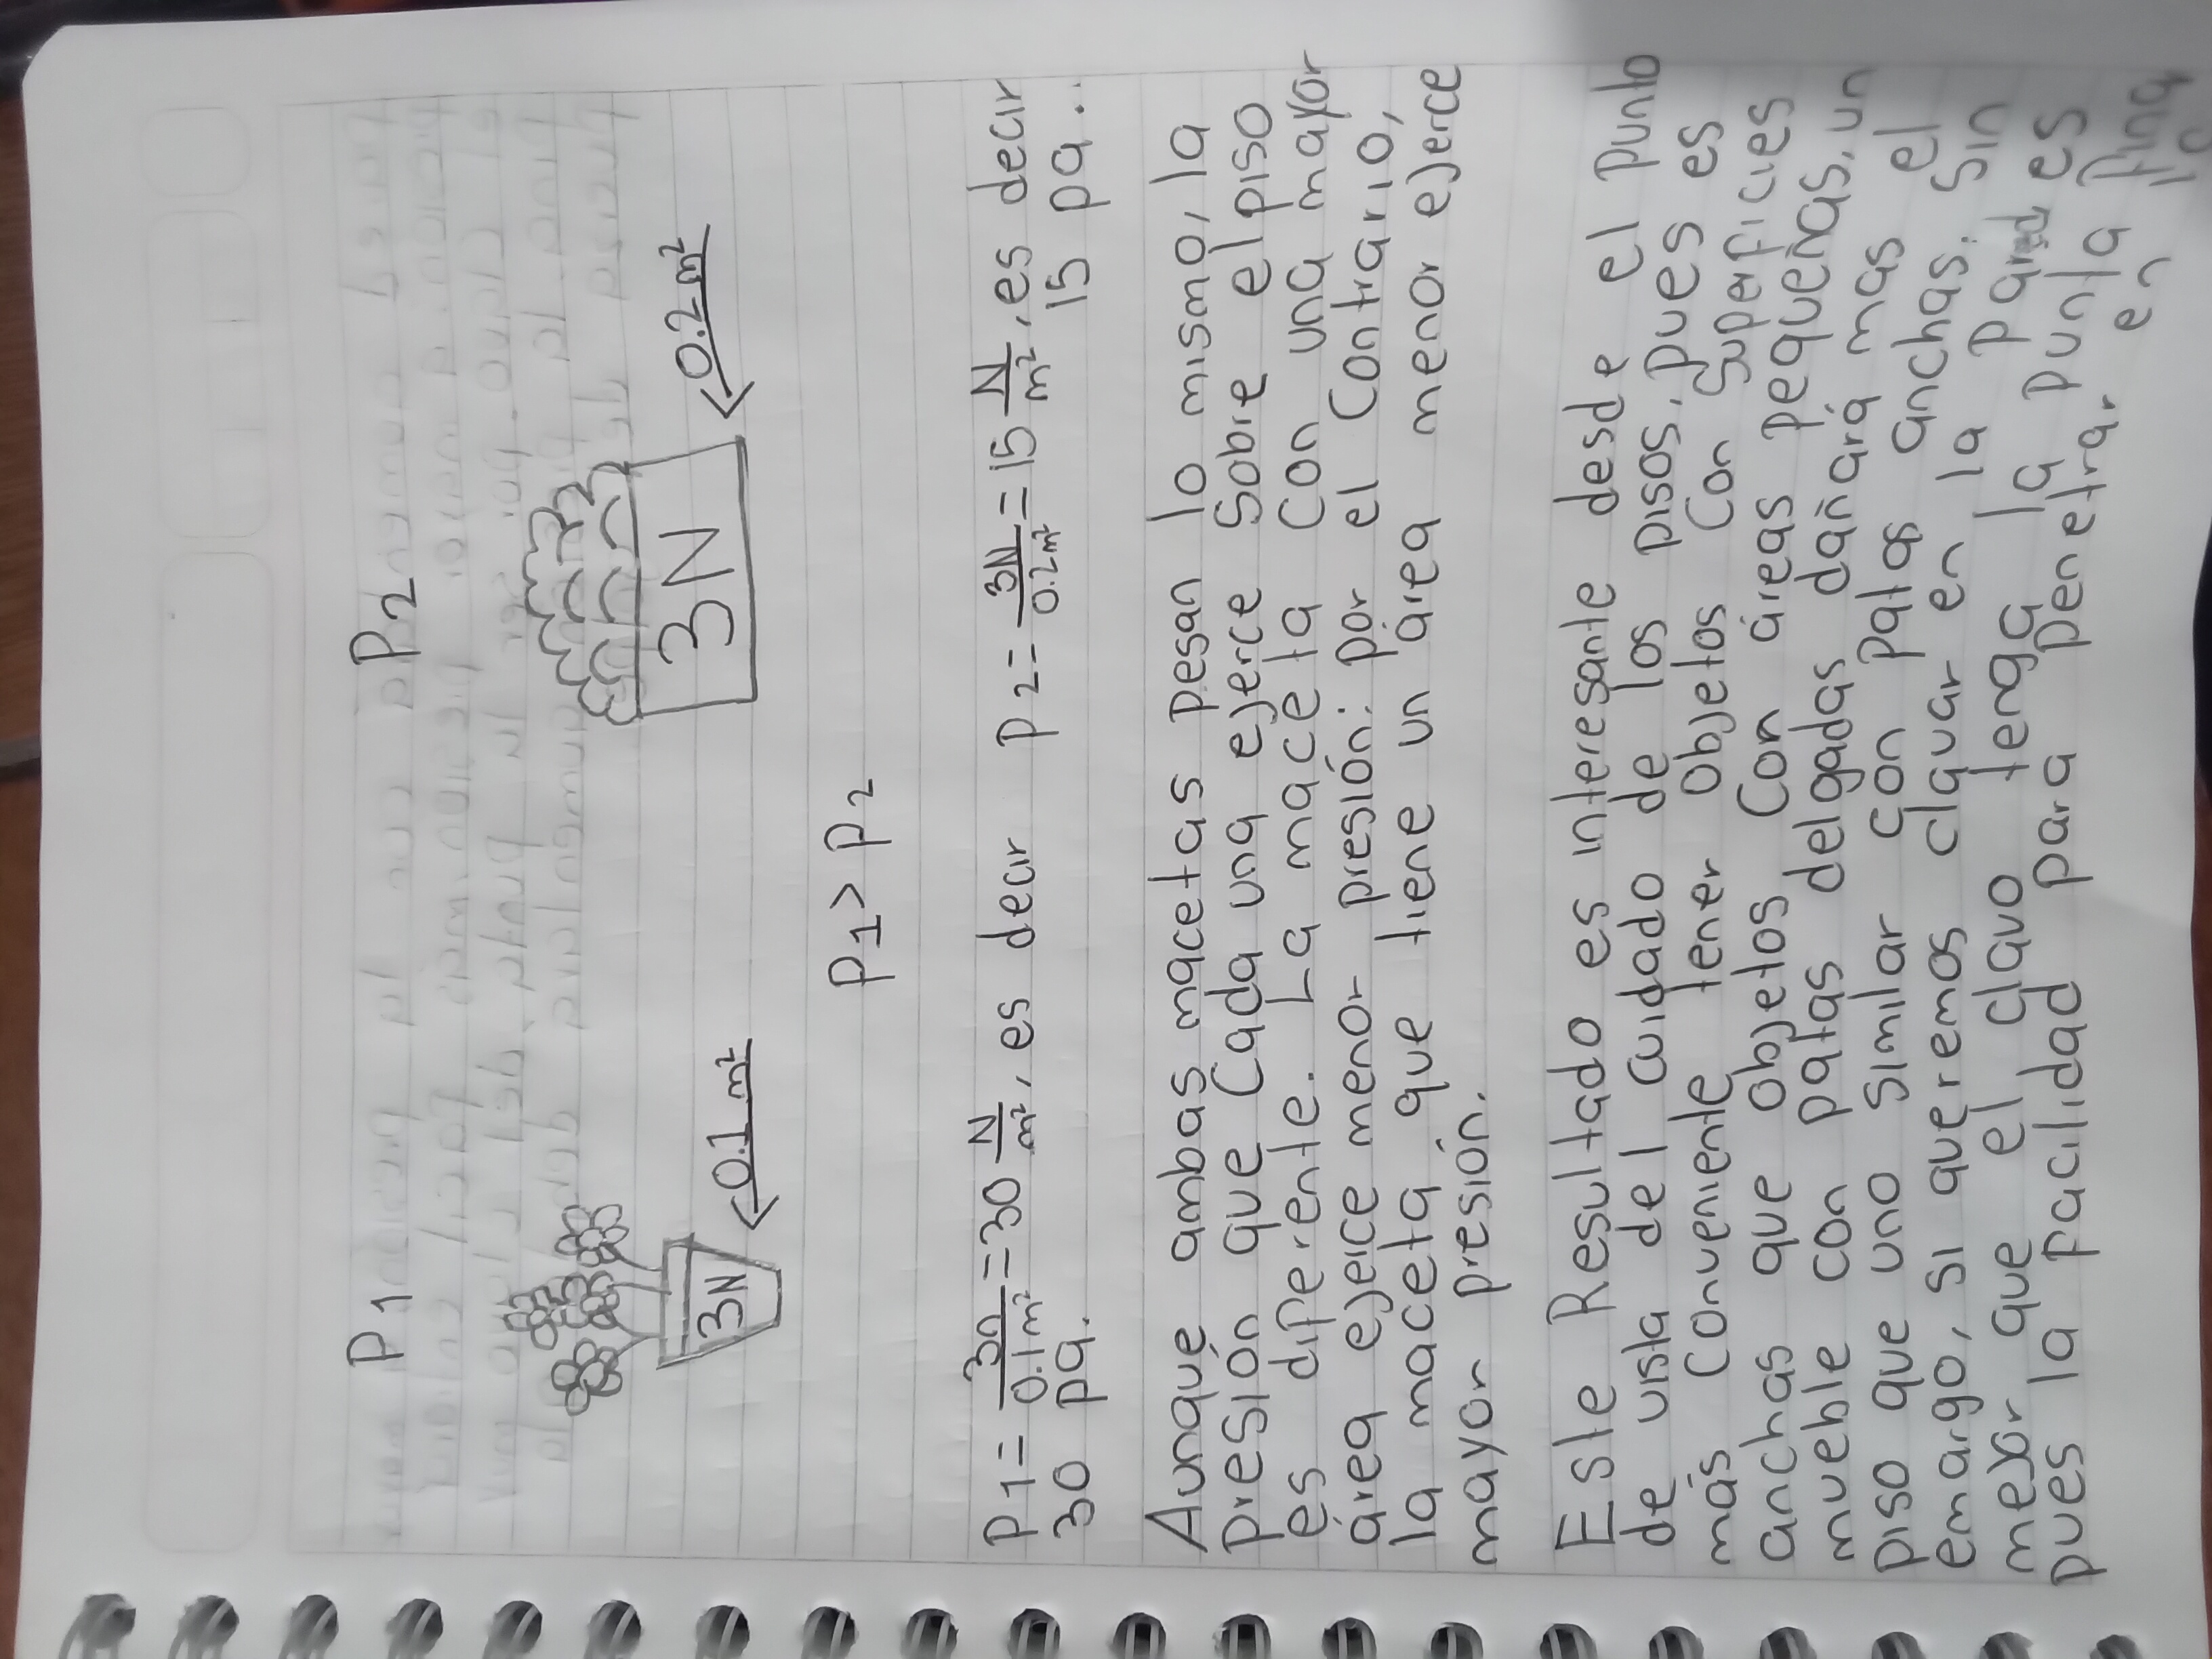 P1 P2
3N 0.1 m² 3N 0.2 m²
P1 > P2
P1 = 3n/0.1 m² = 30 N/m², es decir P2 = 3N/0.2 m² = 15 N/m², es decir
30 pa. 15 pa..
Aunqué ambas macetas pesan lo mismo, la
presión que Cada una ejerce Sobre el piso
és diferente. La maceta Con una mayor
área ejerce menor presión: por el Contrario,
la maceta que tiene un área menor ejerce
mayor presión.
Este Resultado es interesante desde el punto
de vista del cuidado de los pisos, pues es
más Conveniente tener objetos Con Superficies
anchas que objetos Con áreas pequeñas, un
mueble con patas delgadas dañará mas el
piso que uno similar con patas anchas. Sin
emargo, si queremos clavar en la pared es
mejor que el clavo tenga la punta fina
pues la facilidad para penetrar en